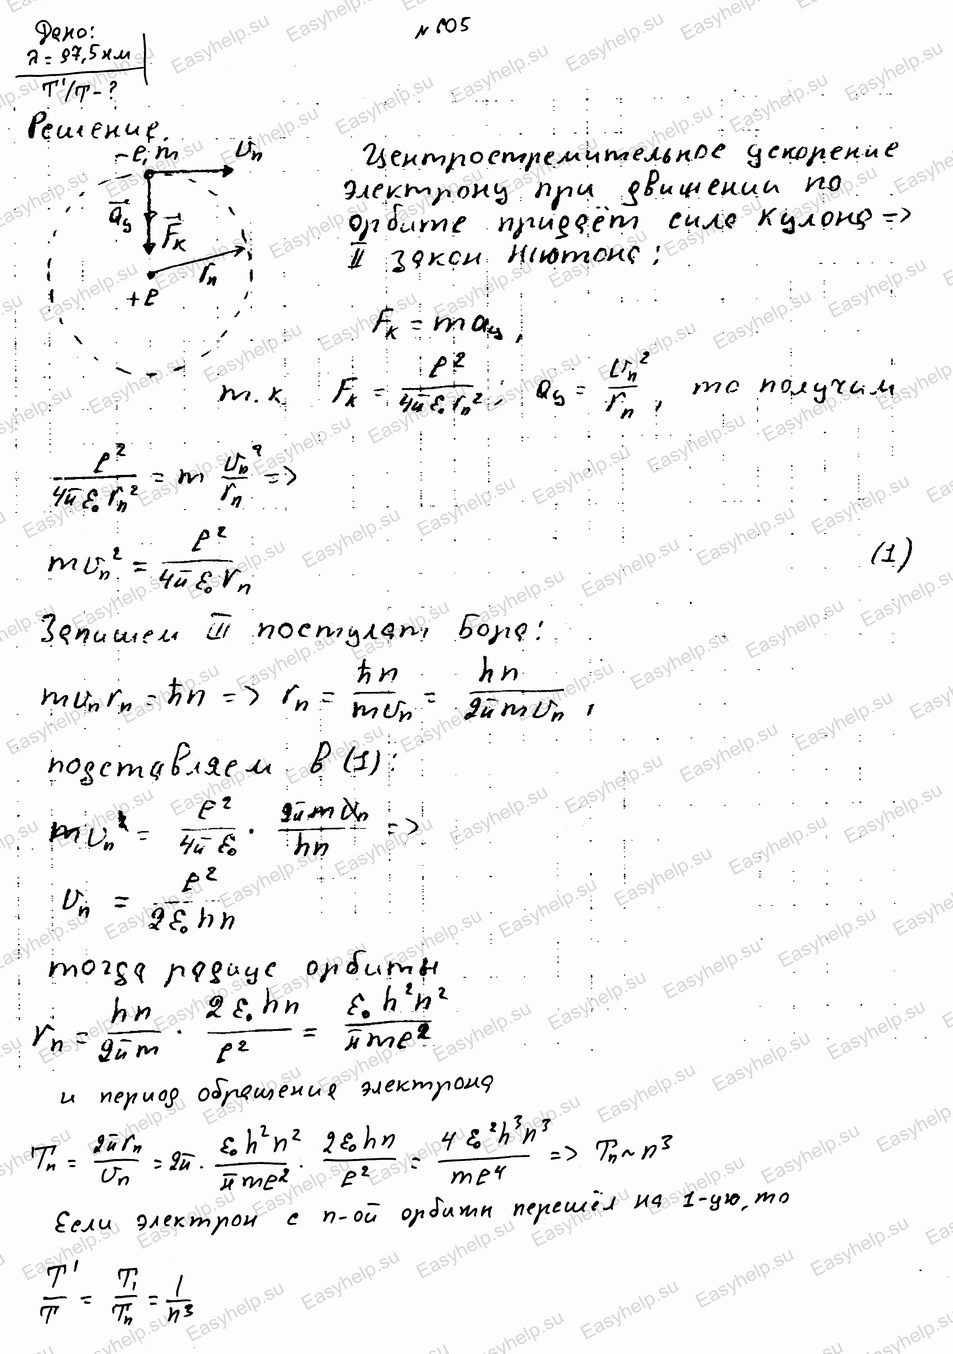 N 605
Дано:
λ = 97,5 нм
T'/T - ?
Решение.
-e, m
υn
aц
Fк
rn
+e
Центростремительное ускорение
электрону при движении по
орбите придаёт сила Кулона =>
II закон Ньютона:
Fк = m aц,
т.к. Fк = e²/(4π ε₀ rn²); aц = υn²/rn, то получим
e²/(4π ε₀ rn²) = m υn²/rn =>
m υn² = e²/(4π ε₀ rn) (1)
Запишем III постулат Бора:
m υn rn = ħn => rn = ħn/(m υn) = hn/(2π m υn),
подставляем в (1):
m υn² = e²/(4π ε₀) · 2π m υn/(hn) =>
υn = e²/(2 ε₀ hn)
тогда радиус орбиты
rn = hn/(2π m) · 2 ε₀ hn/e² = ε₀ h² n²/(π m e²)
и период обращения электрона
Tn = 2π rn/υn = 2π · ε₀ h² n²/(π m e²) · 2 ε₀ hn/e² = 4 ε₀² h³ n³/(m e⁴) => Tn ~ n³
Если электрон с n-ой орбиты перешёл на 1-ую, то
T'/T = T₁/Tn = 1/n³
Easyhelp.su